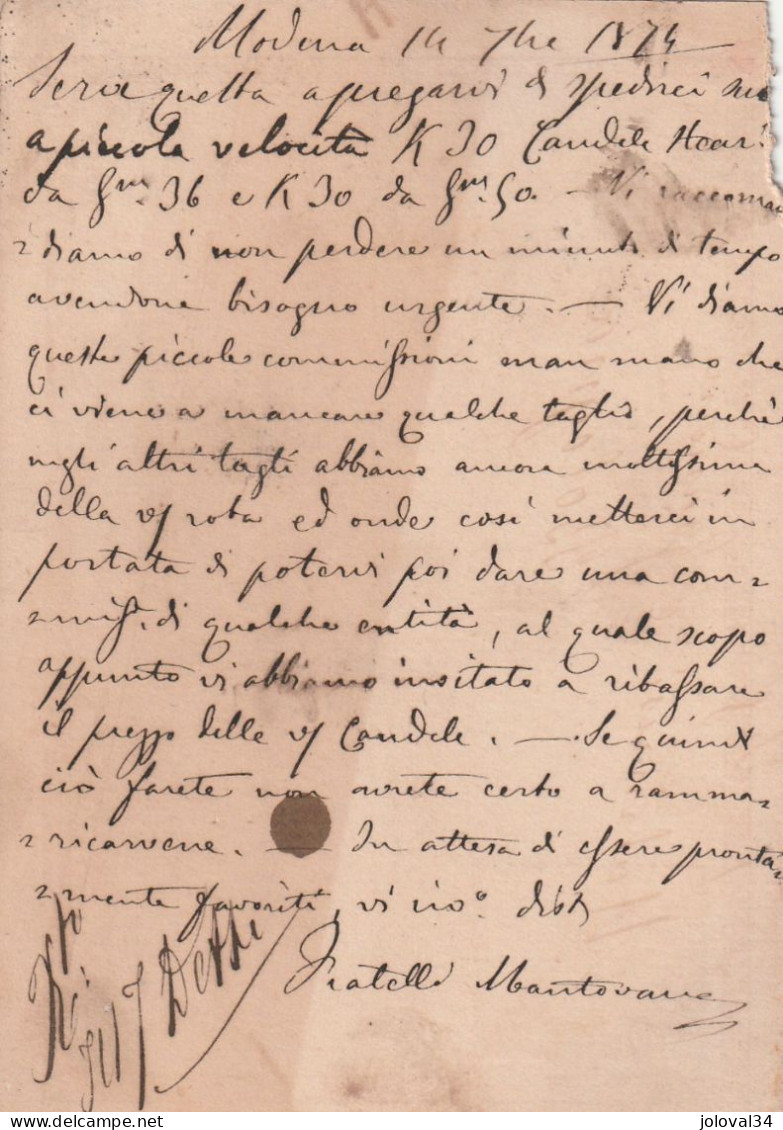 Modena 14 7bre 1874
Serve questa a pregarvi di spedirci
a piccola velocità K 30 Candele Stear:
da Gmi. 36 e K 30 da Gmi. 50. — Vi raccoman
= diamo di non perdere un minuto di tempo
avendone bisogno urgente. — Vi diamo
queste piccole commissioni man mano che
ci viene a mancare qualche taglio, perchè
negli altri tagli abbiamo ancora moltissima
della v/ roba ed onde così metterci in
portata di potervi poi dare una com=
=miss. di qualche entità, al quale scopo
appunto vi abbiamo invitato a ribassare
il prezzo delle v/ Candele. — Se quindi
ciò farete non avrete certo a ramma=
=ricarvene. — In attesa di essere pronta=
=mente favoriti, vi
Fratelli Mantovani
joloval34